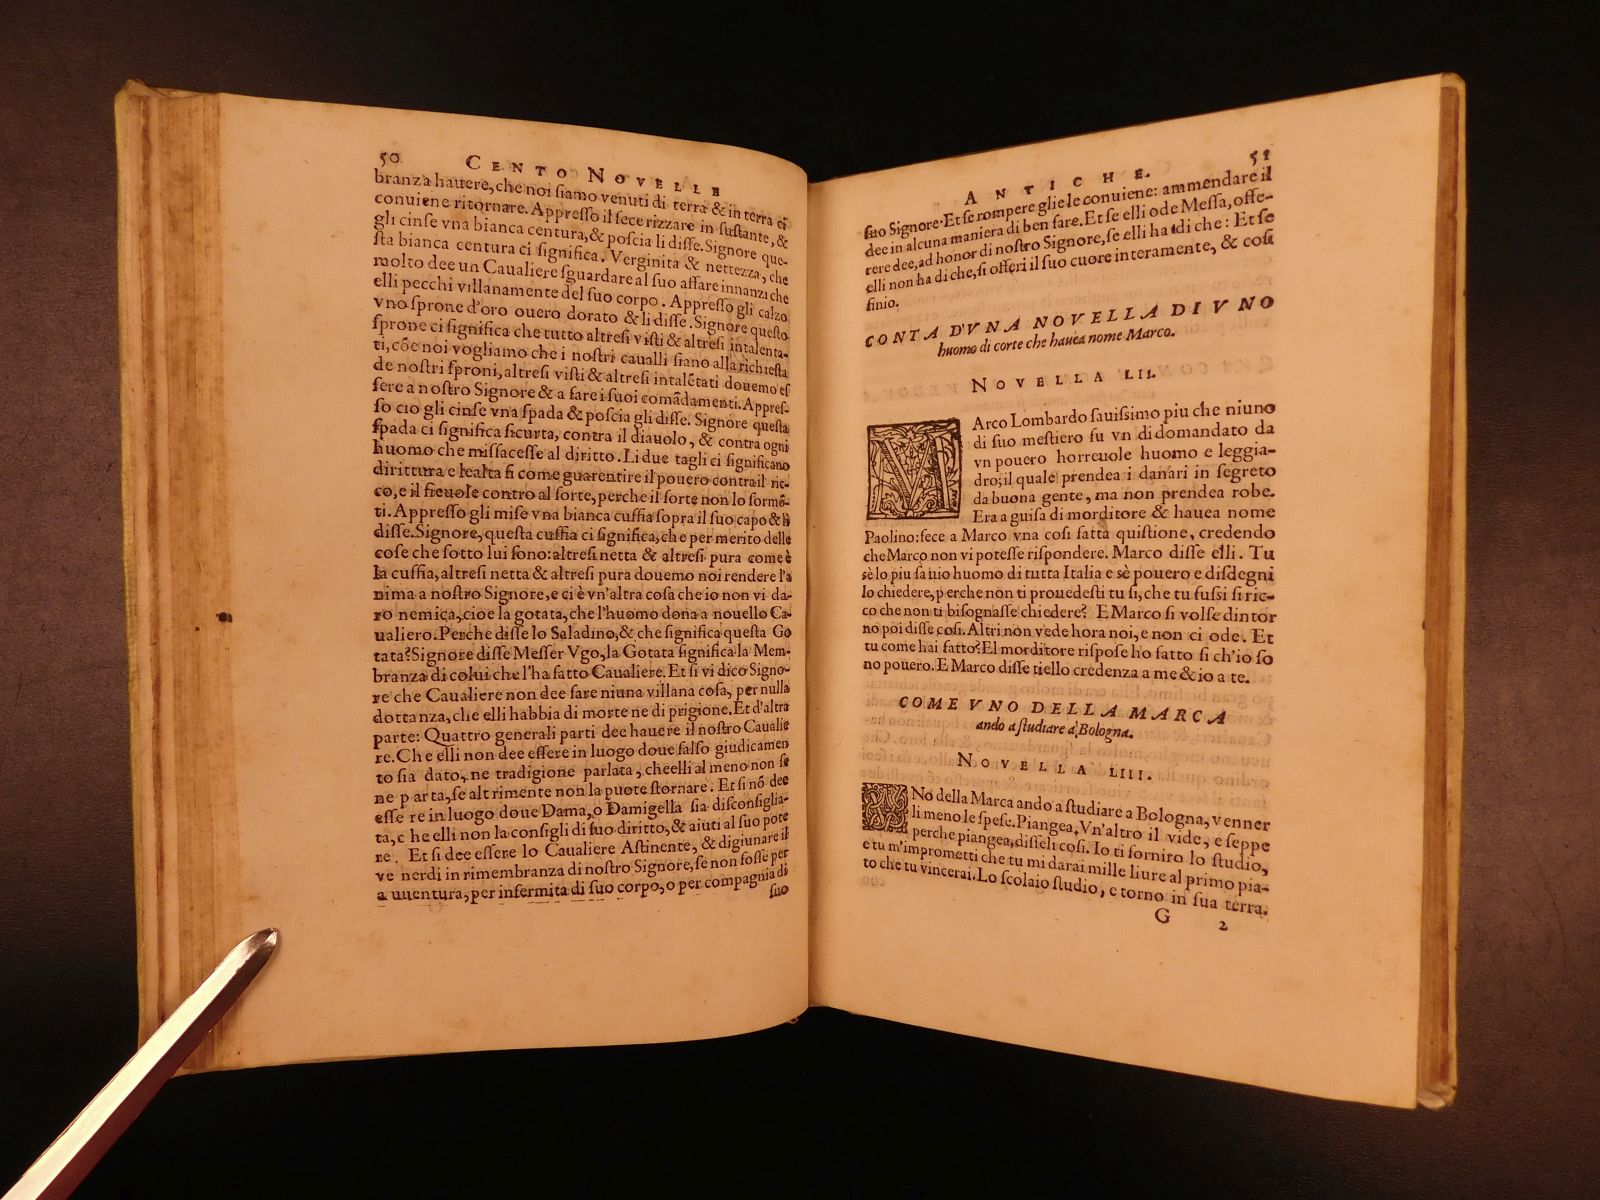 50 CENTO NOVELLE
branza hauere, che noi siamo venuti di terra & in terra ci
conuiene ritornare. Appresso il fece rizzare in sustante, &
gli cinse vna bianca centura, & poscia li disse. Signore que-
sta bianca centura ci significa. Verginita & nettezza, che
molto dee un Caualiere sguardare al suo affare innanzi che
elli pecchi villanamente del suo corpo. Appresso gli calzo
vno sprone d'oro ouero dorato & li disse. Signore questo
sprone ci significa che tutto altresi visti & altresi intalenta-
ti, cōe noi vogliamo che i nostri caualli siano alla richiesta
de nostri sproni, altresi visti & altresi intalētati douemo es
sere a nostro Signore & a fare i suoi comādamenti. Appres-
so cio gli cinse vna spada & poscia gli disse. Signore questa
spada ci significa sicurta, contra il diauolo, & contra ogni
huomo che missacesse al diritto. Li due tagli ci significano
dirittura e lealta si come guarentire il pouero contra il ric-
co, e il fieuole contro al forte, perche il forte non lo formē-
ti. Appresso gli mise vna bianca cuffia sopra il suo capo & li
disse. Signore, questa cuffia ci significa, che per merito delle
cose che sotto lui sono: altresi netta & altresi pura come è
la cuffia, altresi netta & altresi pura douemo noi rendere l'a
nima a nostro Signore, e ci è vn'altra cosa che io non vi da-
ro nemica, cioe la gotata, che l'huomo dona a nouello Ca-
ualiero. Perche disse lo Saladino, & che significa questa Go
tata? Signore disse Messer Vgo, la Gotata significa la Mem-
branza di colui che l'ha fatto Caualiere. Et si vi dico Signo-
re che Caualiere non dee fare niuna villana cosa, per nulla
dottanza, che elli habbia di morte ne di prigione. Et d'altra
parte: Quattro generali parti dee hauere il nostro Caualie
re. Che elli non dee essere in luogo doue falso giudicamen
to sia dato, ne tradigione parlata, che elli al meno non se
ne parta, se altrimente non la puote stornare. Et si nō dee
esse re in luogo doue Dama, o Damigella sia disconsiglia-
ta, che elli non la consigli di suo diritto, & aiuti al suo pote
re. Et si dee essere lo Caualiere Astinente, & digiunare il
ve nerdi in rimembranza di nostro Signore, se non fosse per
a uuentura, per infermita di suo corpo, o per compagnia di
suo
ANTICHE. 51
suo Signore. Et se rompere gliele conuiene: ammendare il
dee in alcuna maniera di ben fare. Et se elli ode Messa, offe-
rere dee, ad honor di nostro Signore, se elli ha di che: Et se
elli non ha di che, si offeri il suo cuore interamente, & cosi
finio.
CONTA D'VNA NOVELLA DI VNO
huomo di corte che hauea nome Marco.
NOVELLA LII.
MArco Lombardo sauissimo piu che niuno
di suo mestiero fu vn di domandato da
vn pouero horreuole huomo e leggia-
dro; il quale prendea i danari in segreto
da buona gente, ma non prendea robe.
Era a guisa di morditore & hauea nome
Paolino: fece a Marco vna cosi fatta quistione, credendo
che Marco non vi potesse rispondere. Marco disse elli. Tu
sè lo piu sauio huomo di tutta Italia e sè pouero e disdegni
lo chiedere, perche non ti prouedesti tu si, che tu fussi si ric-
co che non ti bisognasse chiedere? E Marco si volse dintor
no poi disse cosi. Altri non vede hora noi, e non ci ode. Et
tu come hai fatto? El morditore rispose ho fatto si ch'io so
no pouero. E Marco disse tiello credenza a me & io a te.
COME VNO DELLA MARCA
ando a studiare a Bologna.
NOVELLA LIII.
VNo della Marca ando a studiare a Bologna, venner
li meno le spese. Piangea. Vn'altro il vide, e seppe
perche piangea, disseli cosi. Io ti forniro lo studio,
e tu m'imprometti che tu mi darai mille liure al primo pia-
to che tu vincerai. Lo scolaio studio, e torno in sua terra.
G 2